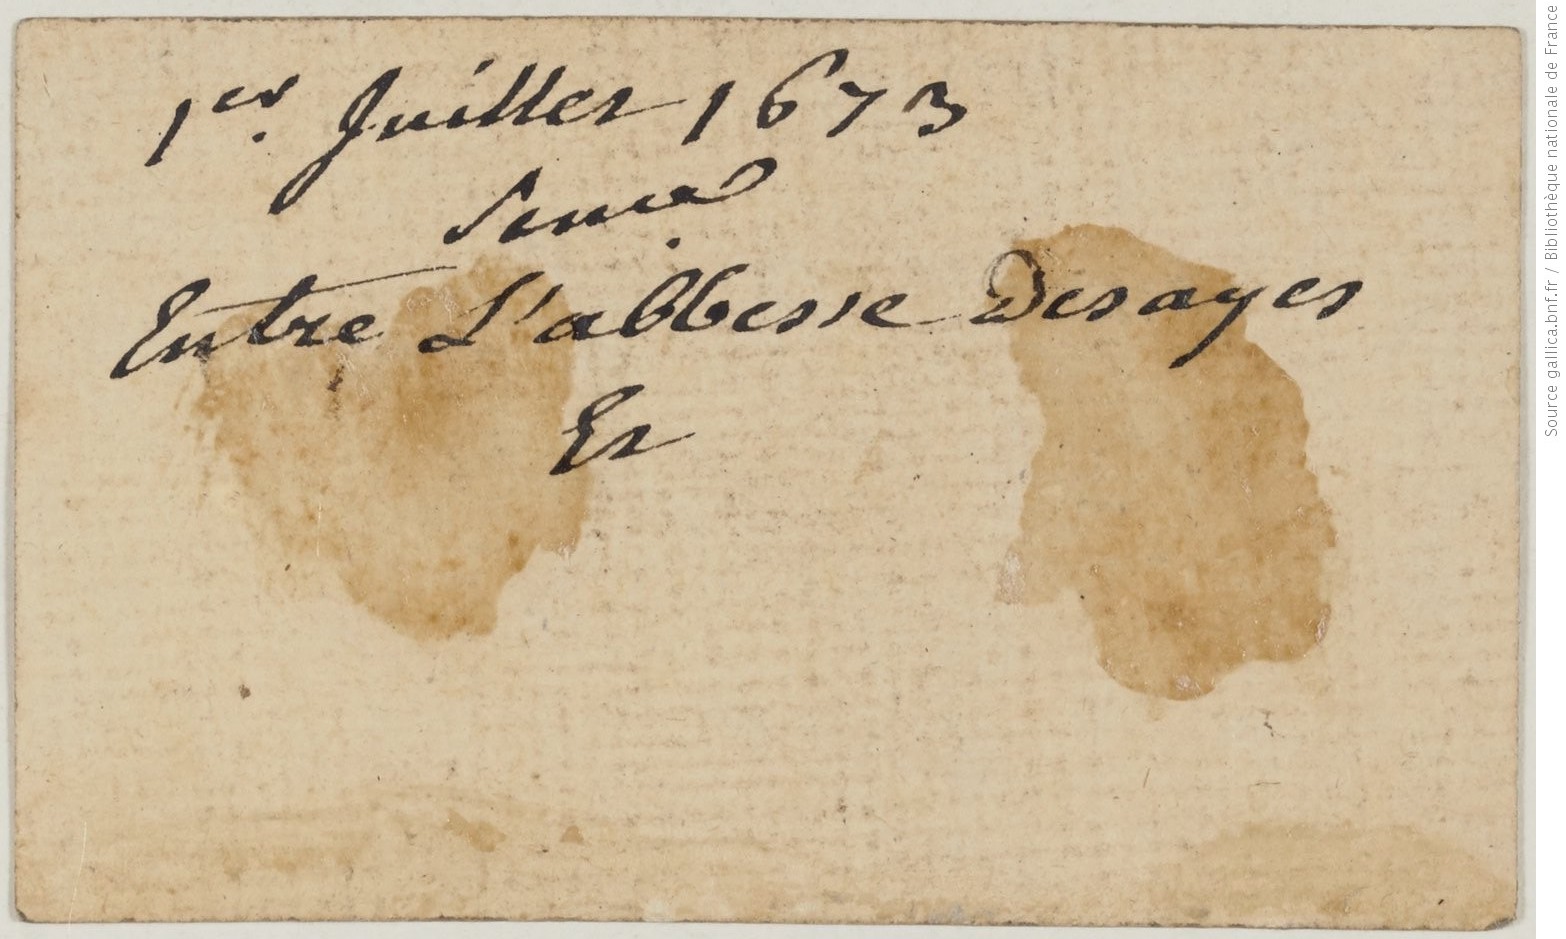 1er. Juillet 1673
Entre L'abbesse Desayes
Et
Source gallica.bnf.fr / Bibliothèque nationale de France